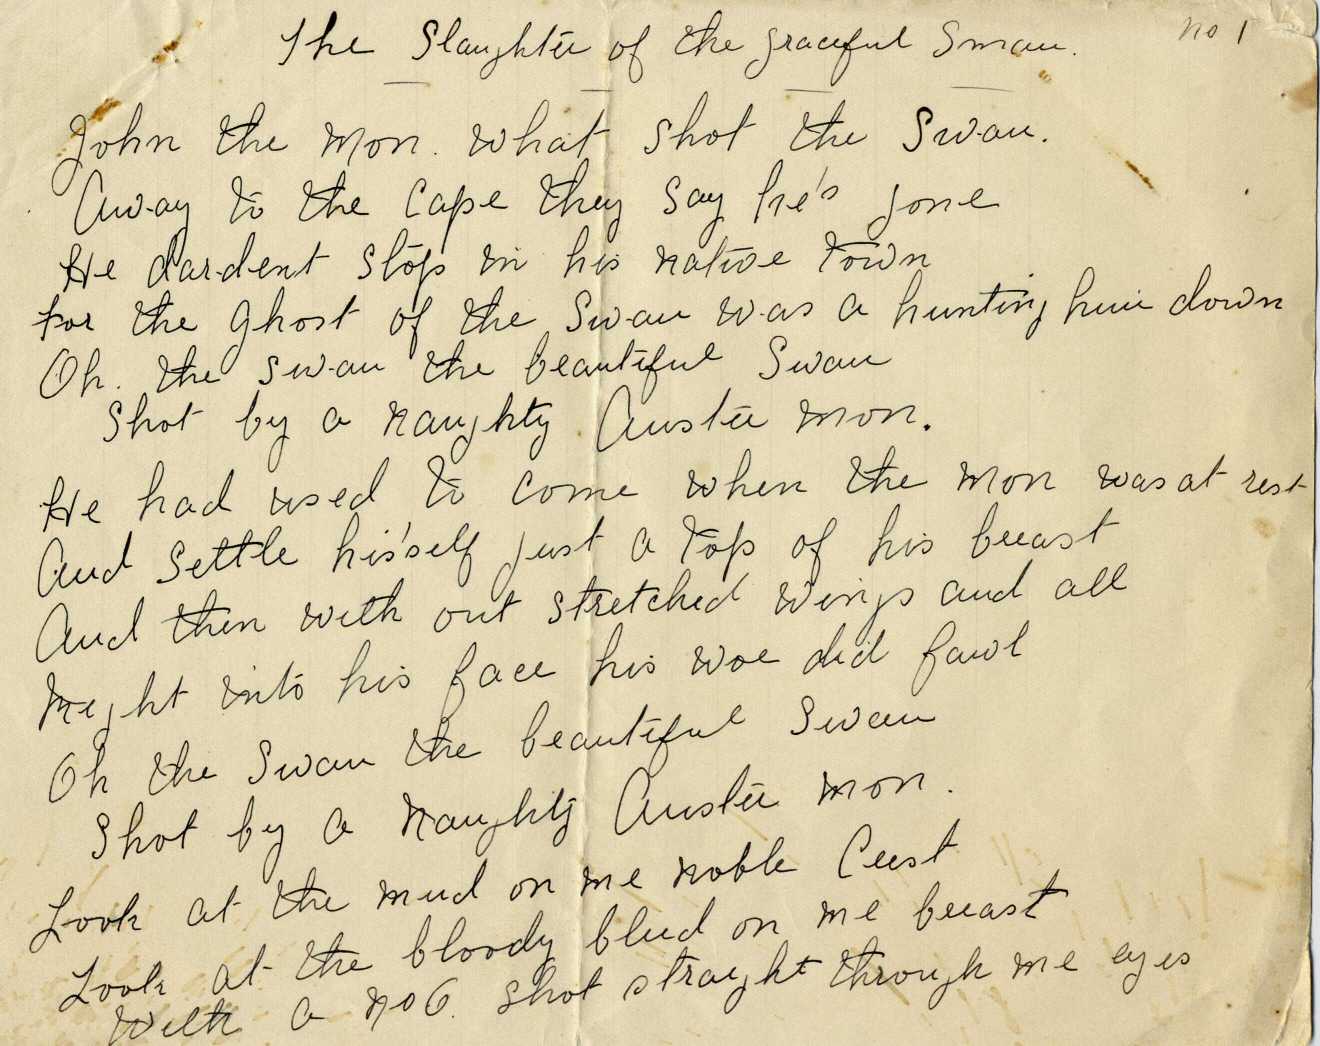 The Slaughter of the graceful Swan.
no 1
John the Mon. what shot the Swan.
Away to the Cape they say he's gone
He dardent stop in his native town
for the Ghost of the Swan was a hunting him down
Oh. the swan the beautiful Swan
Shot by a naughty Auster mon.
He had used to come when the Mon was at rest
And settle his'self just a top of his breast
And then with out stretched wings and all
Right into his face his woe did fawl
Oh the Swan the beautiful Swan
Shot by a naughty Auster mon.
Look at the mud on me noble Crest
Look at the bloody blud on me breast
With a no 6. shot straight through me eyes